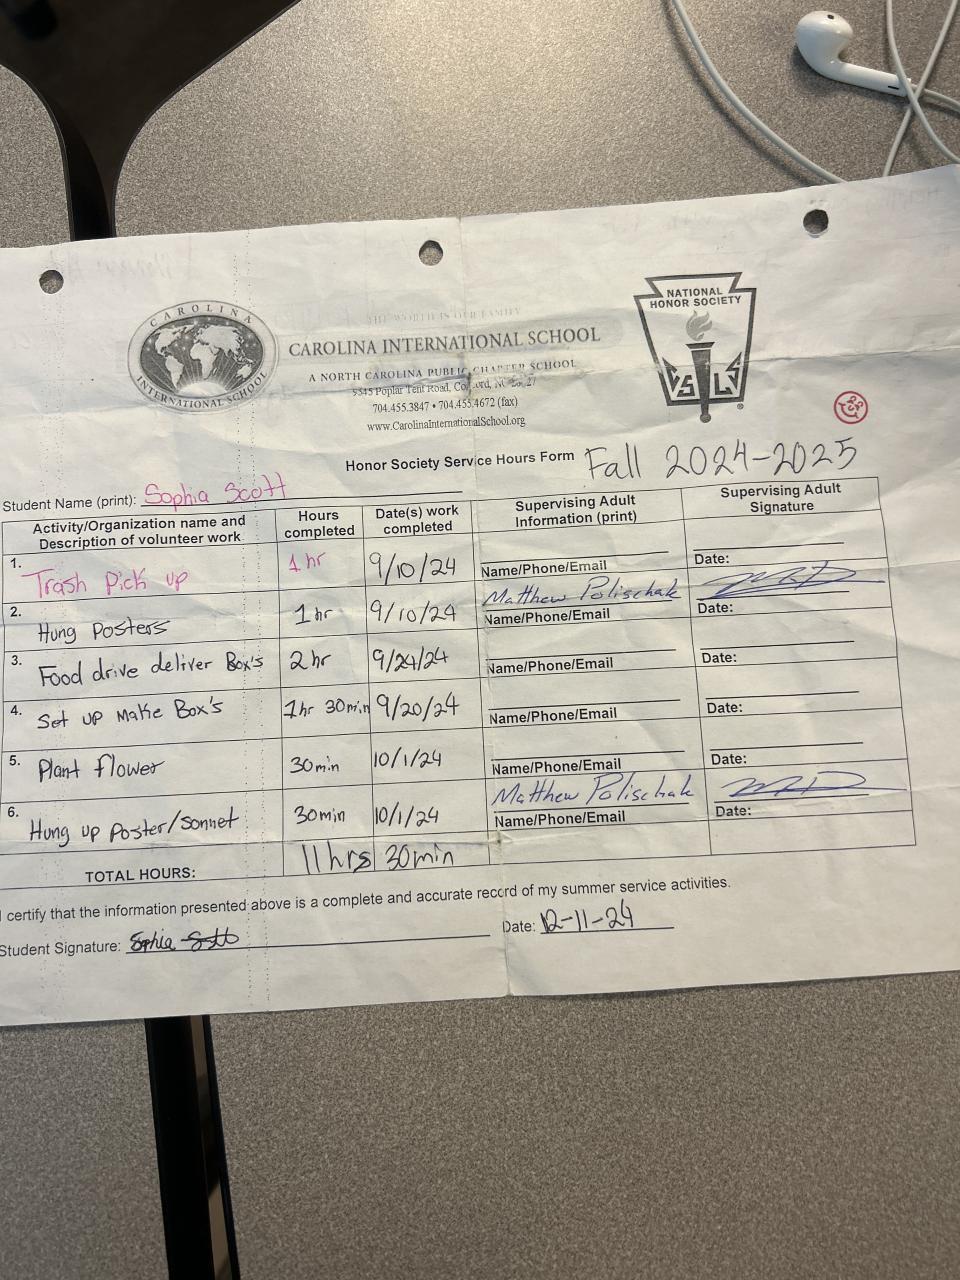 CAROLINA
INTERNATIONAL SCHOOL
THE WORLD IS OUR FAMILY
CAROLINA INTERNATIONAL SCHOOL
A NORTH CAROLINA PUBLIC CHARTER SCHOOL
9545 Poplar Tent Road, Concord, NC
704.455.3847 • 704.455.4672 (fax)
www.CarolinaInternationalSchool.org
NATIONAL
HONOR SOCIETY
C S L S
®
Honor Society Service Hours Form Fall 2024-2025
Student Name (print): Sophia Scott
Activity/Organization name and Description of volunteer work
Hours completed
Date(s) work completed
Supervising Adult Information (print)
Supervising Adult Signature
1. Trash Pick up 1 hr 9/10/24 Name/Phone/Email Date:
2. Hung Posters 1hr 9/10/24 Matthew Polischak Name/Phone/Email Date:
3. Food drive deliver Box's 2hr 9/24/24 Name/Phone/Email Date:
4. Set up Make Box's 1hr 30min 9/20/24 Name/Phone/Email Date:
5. Plant flower 30min 10/1/24 Name/Phone/Email Date:
6. Hung up Poster/sonnet 30min 10/1/24 Matthew Polischak Name/Phone/Email Date:
TOTAL HOURS: 11hrs 30min
I certify that the information presented above is a complete and accurate record of my summer service activities.
Student Signature: Sophia Scott Date: 12-11-24